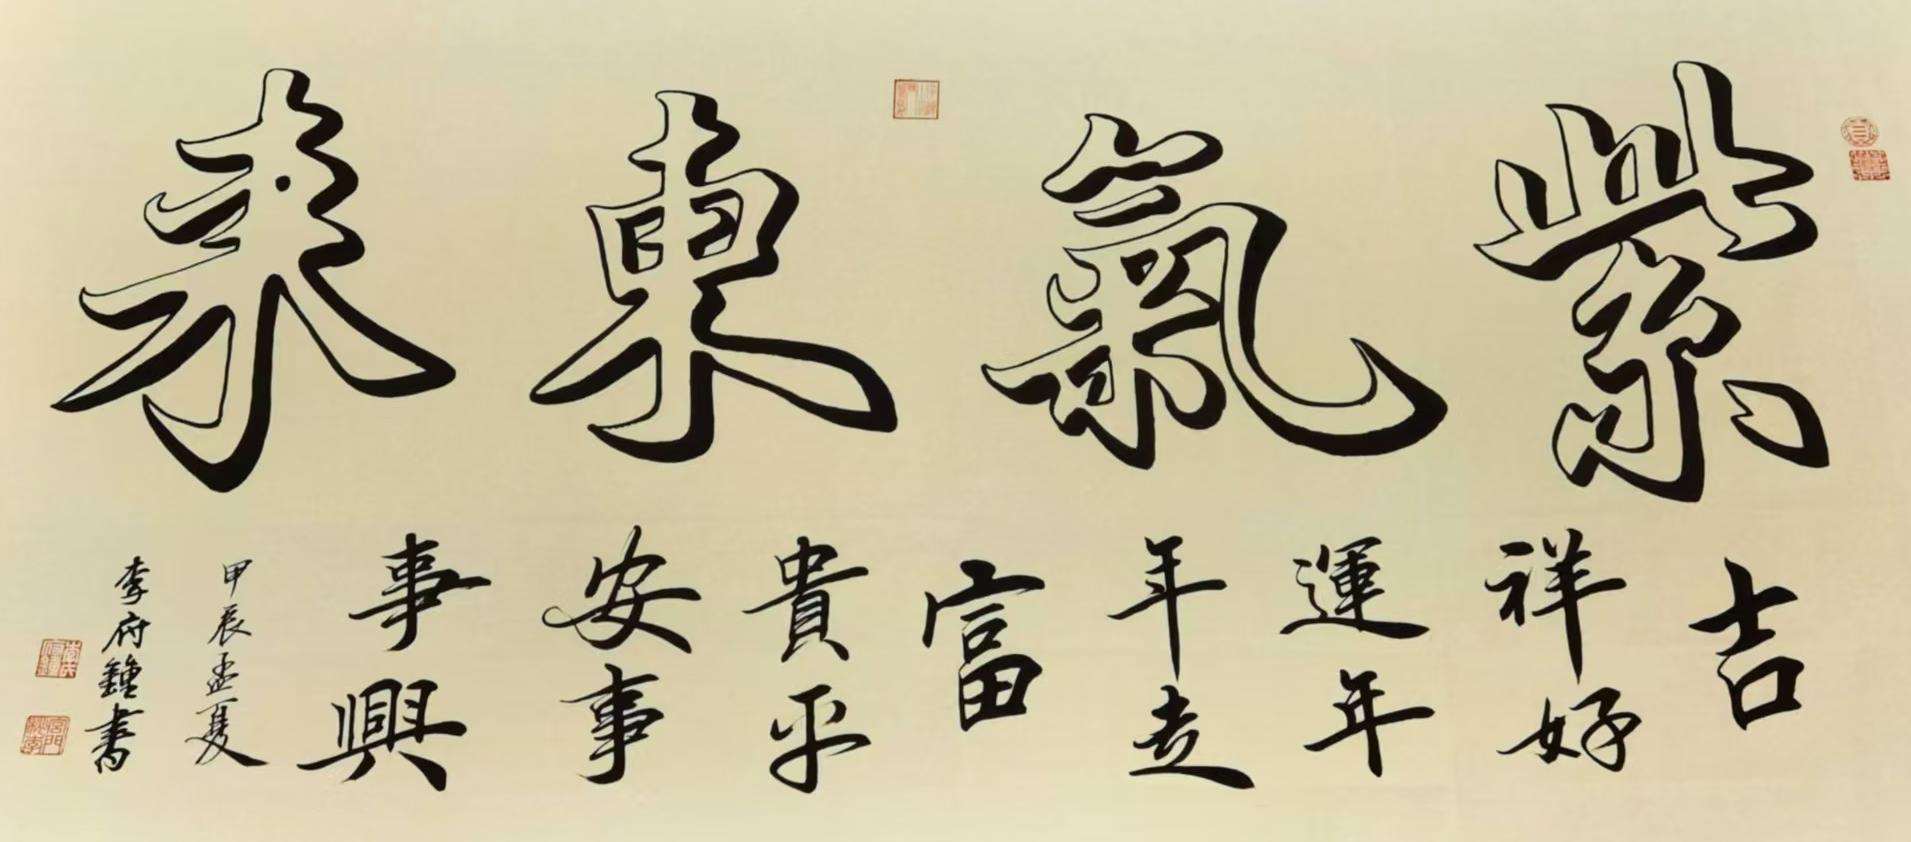 紫氣東來
吉
祥好
運年
年走
富
貴平
安事
事興
甲辰孟夏
李府鐘書